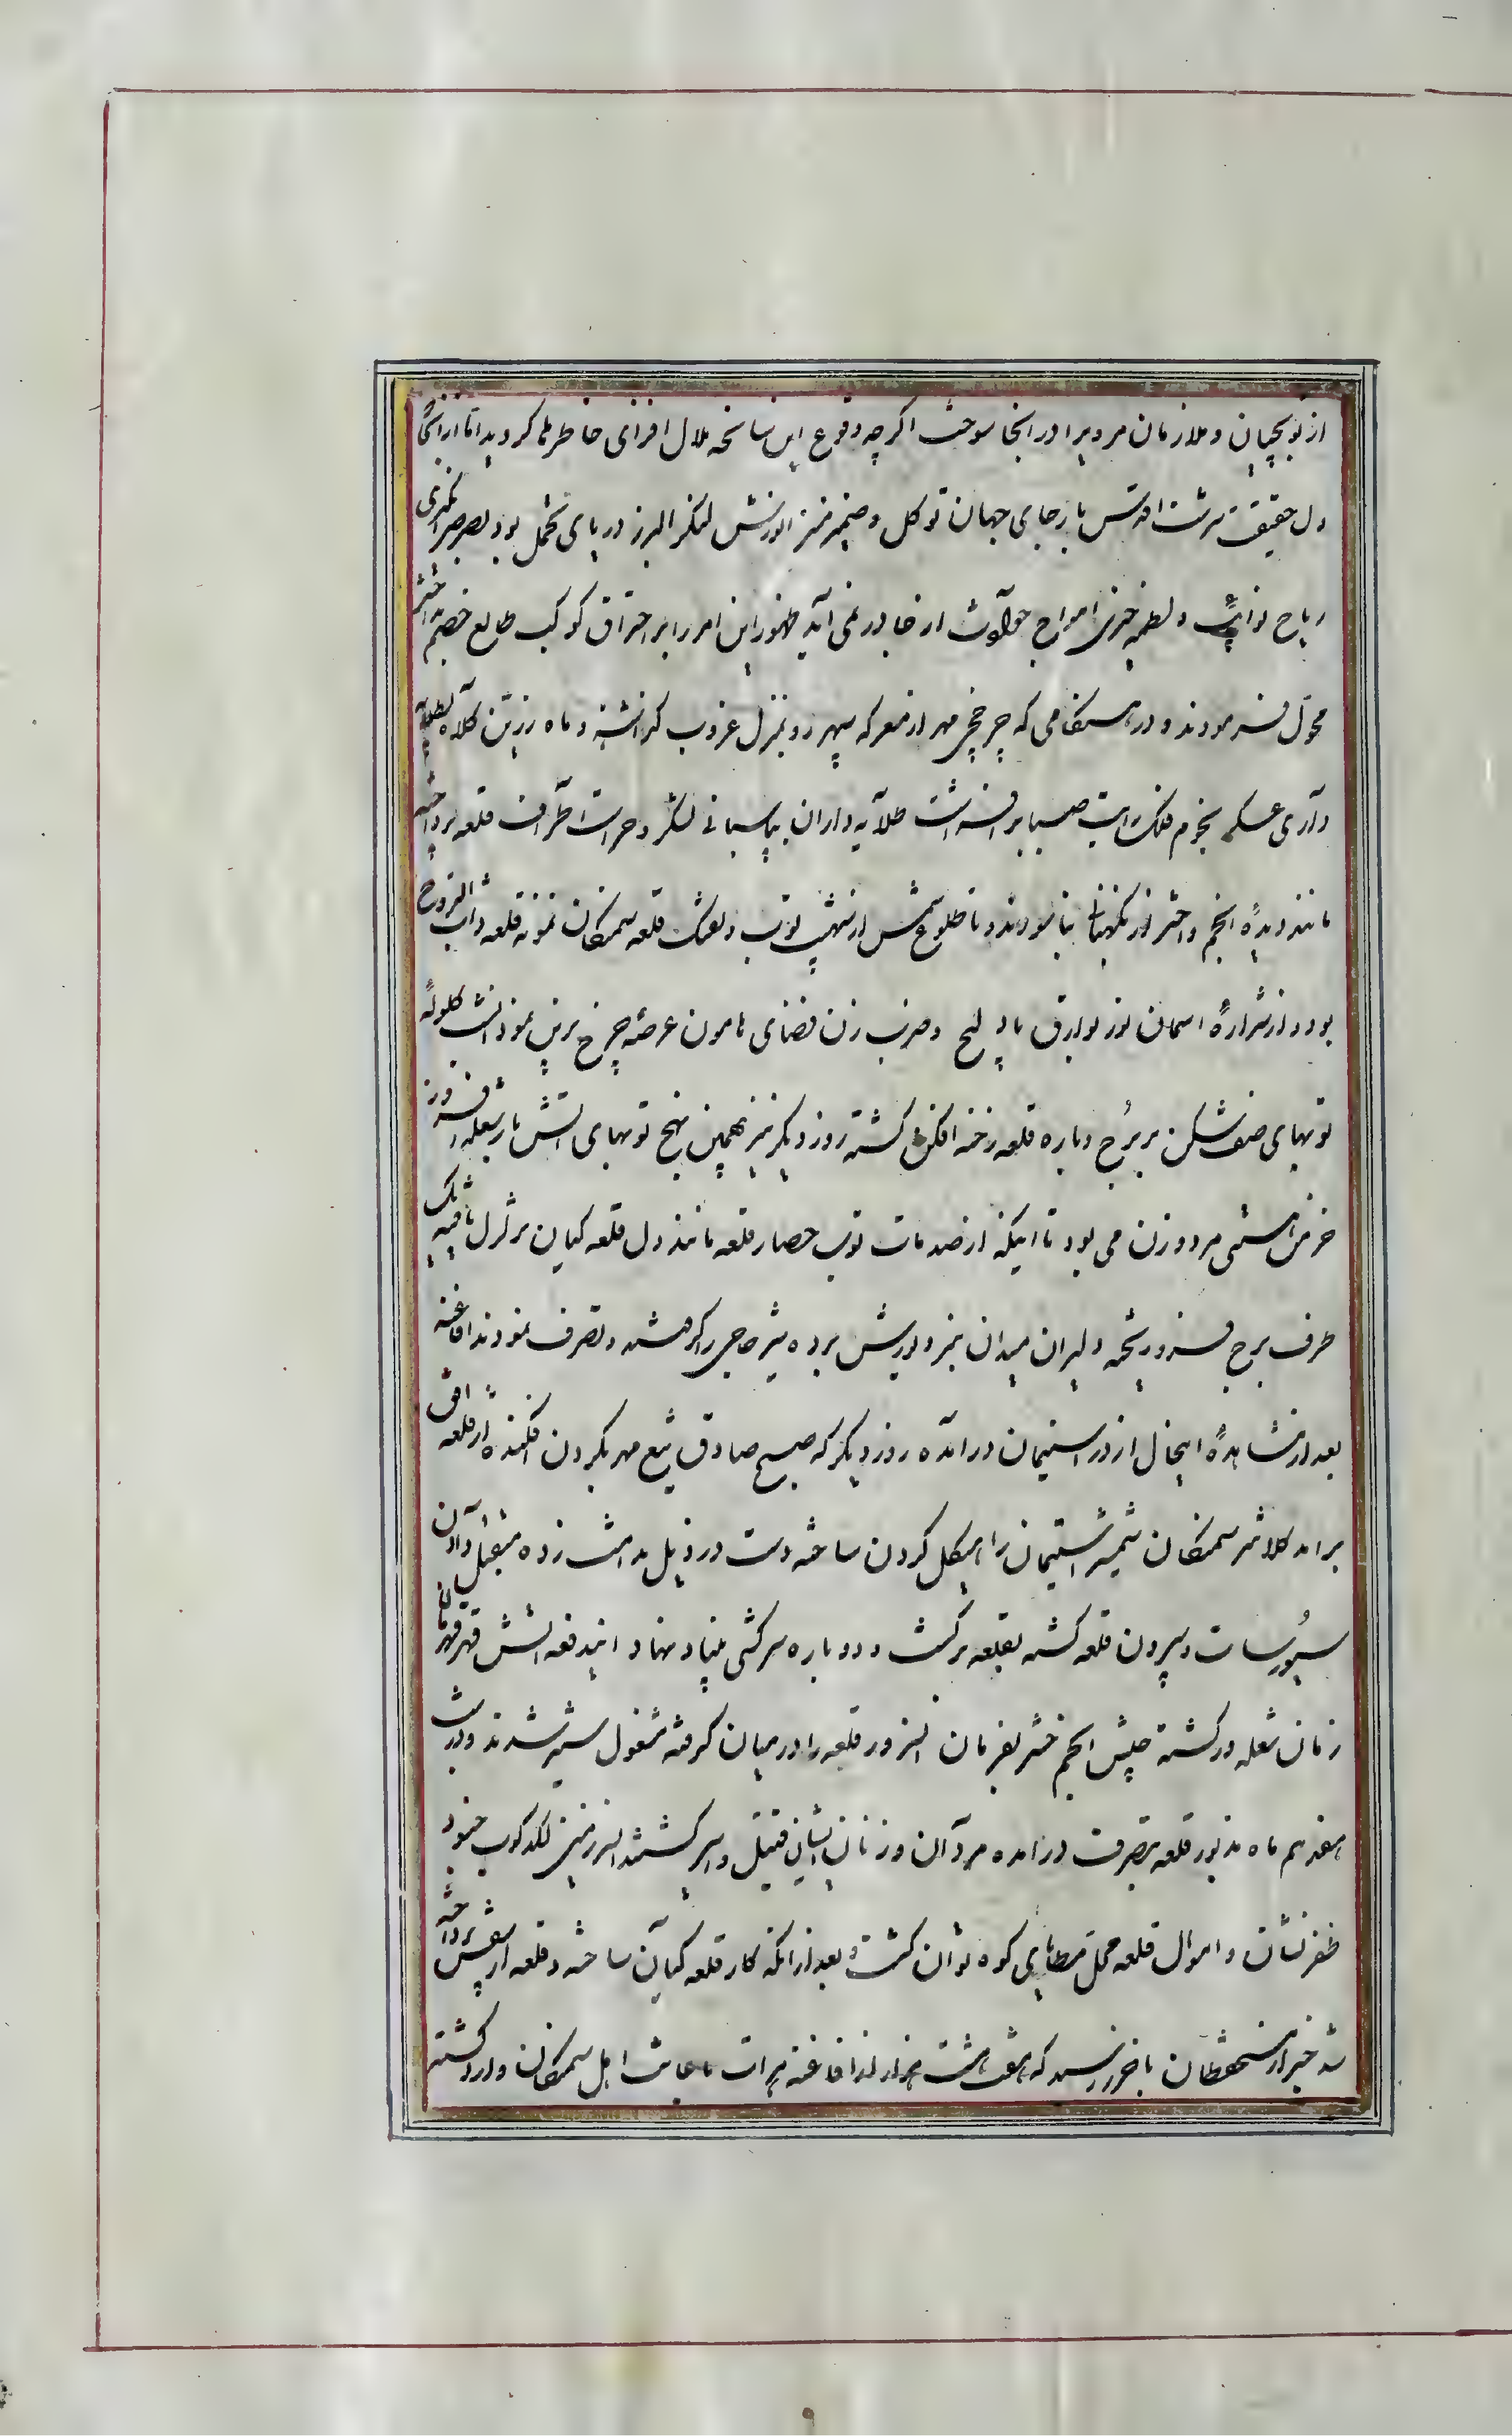 از توپچیان و ملازمان مرد پیرا در انجا سوخت اگرچه وقوع این سانحه ملال افزای خاطر ملا کردید اما از انجا که
دل حقیقت سرشت اقدس پا برجای جهان توکل و ضمیر منیر انورش لنکر البرز دریای تحمل بود بصرصر انکیزی
ریاح نوایب و لطمه خیزی امواج حوادث از جا در نمی آید ظهور این امر را بر احتراق کوکب طالع خصم بد اختر
محول فرمودند و در هنکامی که چرخچی مهر از معرکه سپهر رو بمنزل غروب کذاشته و ماه زرین کلاه بطلایه
داری عسکر نجوم فلک رایت ضیا برافراشت طلایه داران بپاسبانی لشکر و حراست اطراف قلعه پرداخته
مانند دیدهٔ انجم و اختر از نکهبانی نیاسودند و تا طلوع شمس از نهیب توپ و تفنک قلعه سمنکان نمونه قلعه ذات البروج
بود و از شرارهٔ اسمان نوز بوارق بادلیج و ضرب زن فضای هامون عرصه چرخ برین نمود اتش کلولهٔ
توپهای صف شکن بر برج و باره قلعه رخنه افکن کشته روز دیکر نیز بهمین نهج توپهای اتش بار شعله افروز
خرمن هستی مرد و زن می بود تا اینکه از صدمات توپ حصار قلعه مانند دل قلعه کیان بزلزل یافته یک
طرف برج فرو ریخته دلیران میدان نبرد یورش برده شیر حاجی را کرفتند و تصرف نمودند افاغنه
بعد از مشاهدهٔ اینحال از در استیمان در آمده روز دیکر که صبح صادق تیغ مهر بکردن افکنده از قلعهٔ افق
برامد کلانتر سمنکان شمشیر استیمان را هیکل کردن ساخته دست در ذیل ندامت زده متقبل دادن
سیورسات و بیرون قلعه کشته بقلعه برکشت و دوباره سرکشی بنیاد نهاد ایندفعه اتش قهر قهرمان
زمان شعله ور کشته جیش انجم حشر بفرمان انسرور قلعه را در میان کرفته مشغول ستیز شدند و در شب
هفدهم ماه مذبور قلعه بتصرف در امده مردان و زنان ایشان قتیل و اسیر کشتند انسرزمین لکدکوب جنود
ظفر نشان و اموال قلعه محمل مطایای کوه توان کشت و بعد از انکه کار قلعه کیان ساخته و قلعه از پیش پرداخته
شد خبر از مستحفظان باخرز رسید که هفت هشت هزار از افاغنه هرات باعانت اهل سمنکان وارد کشته